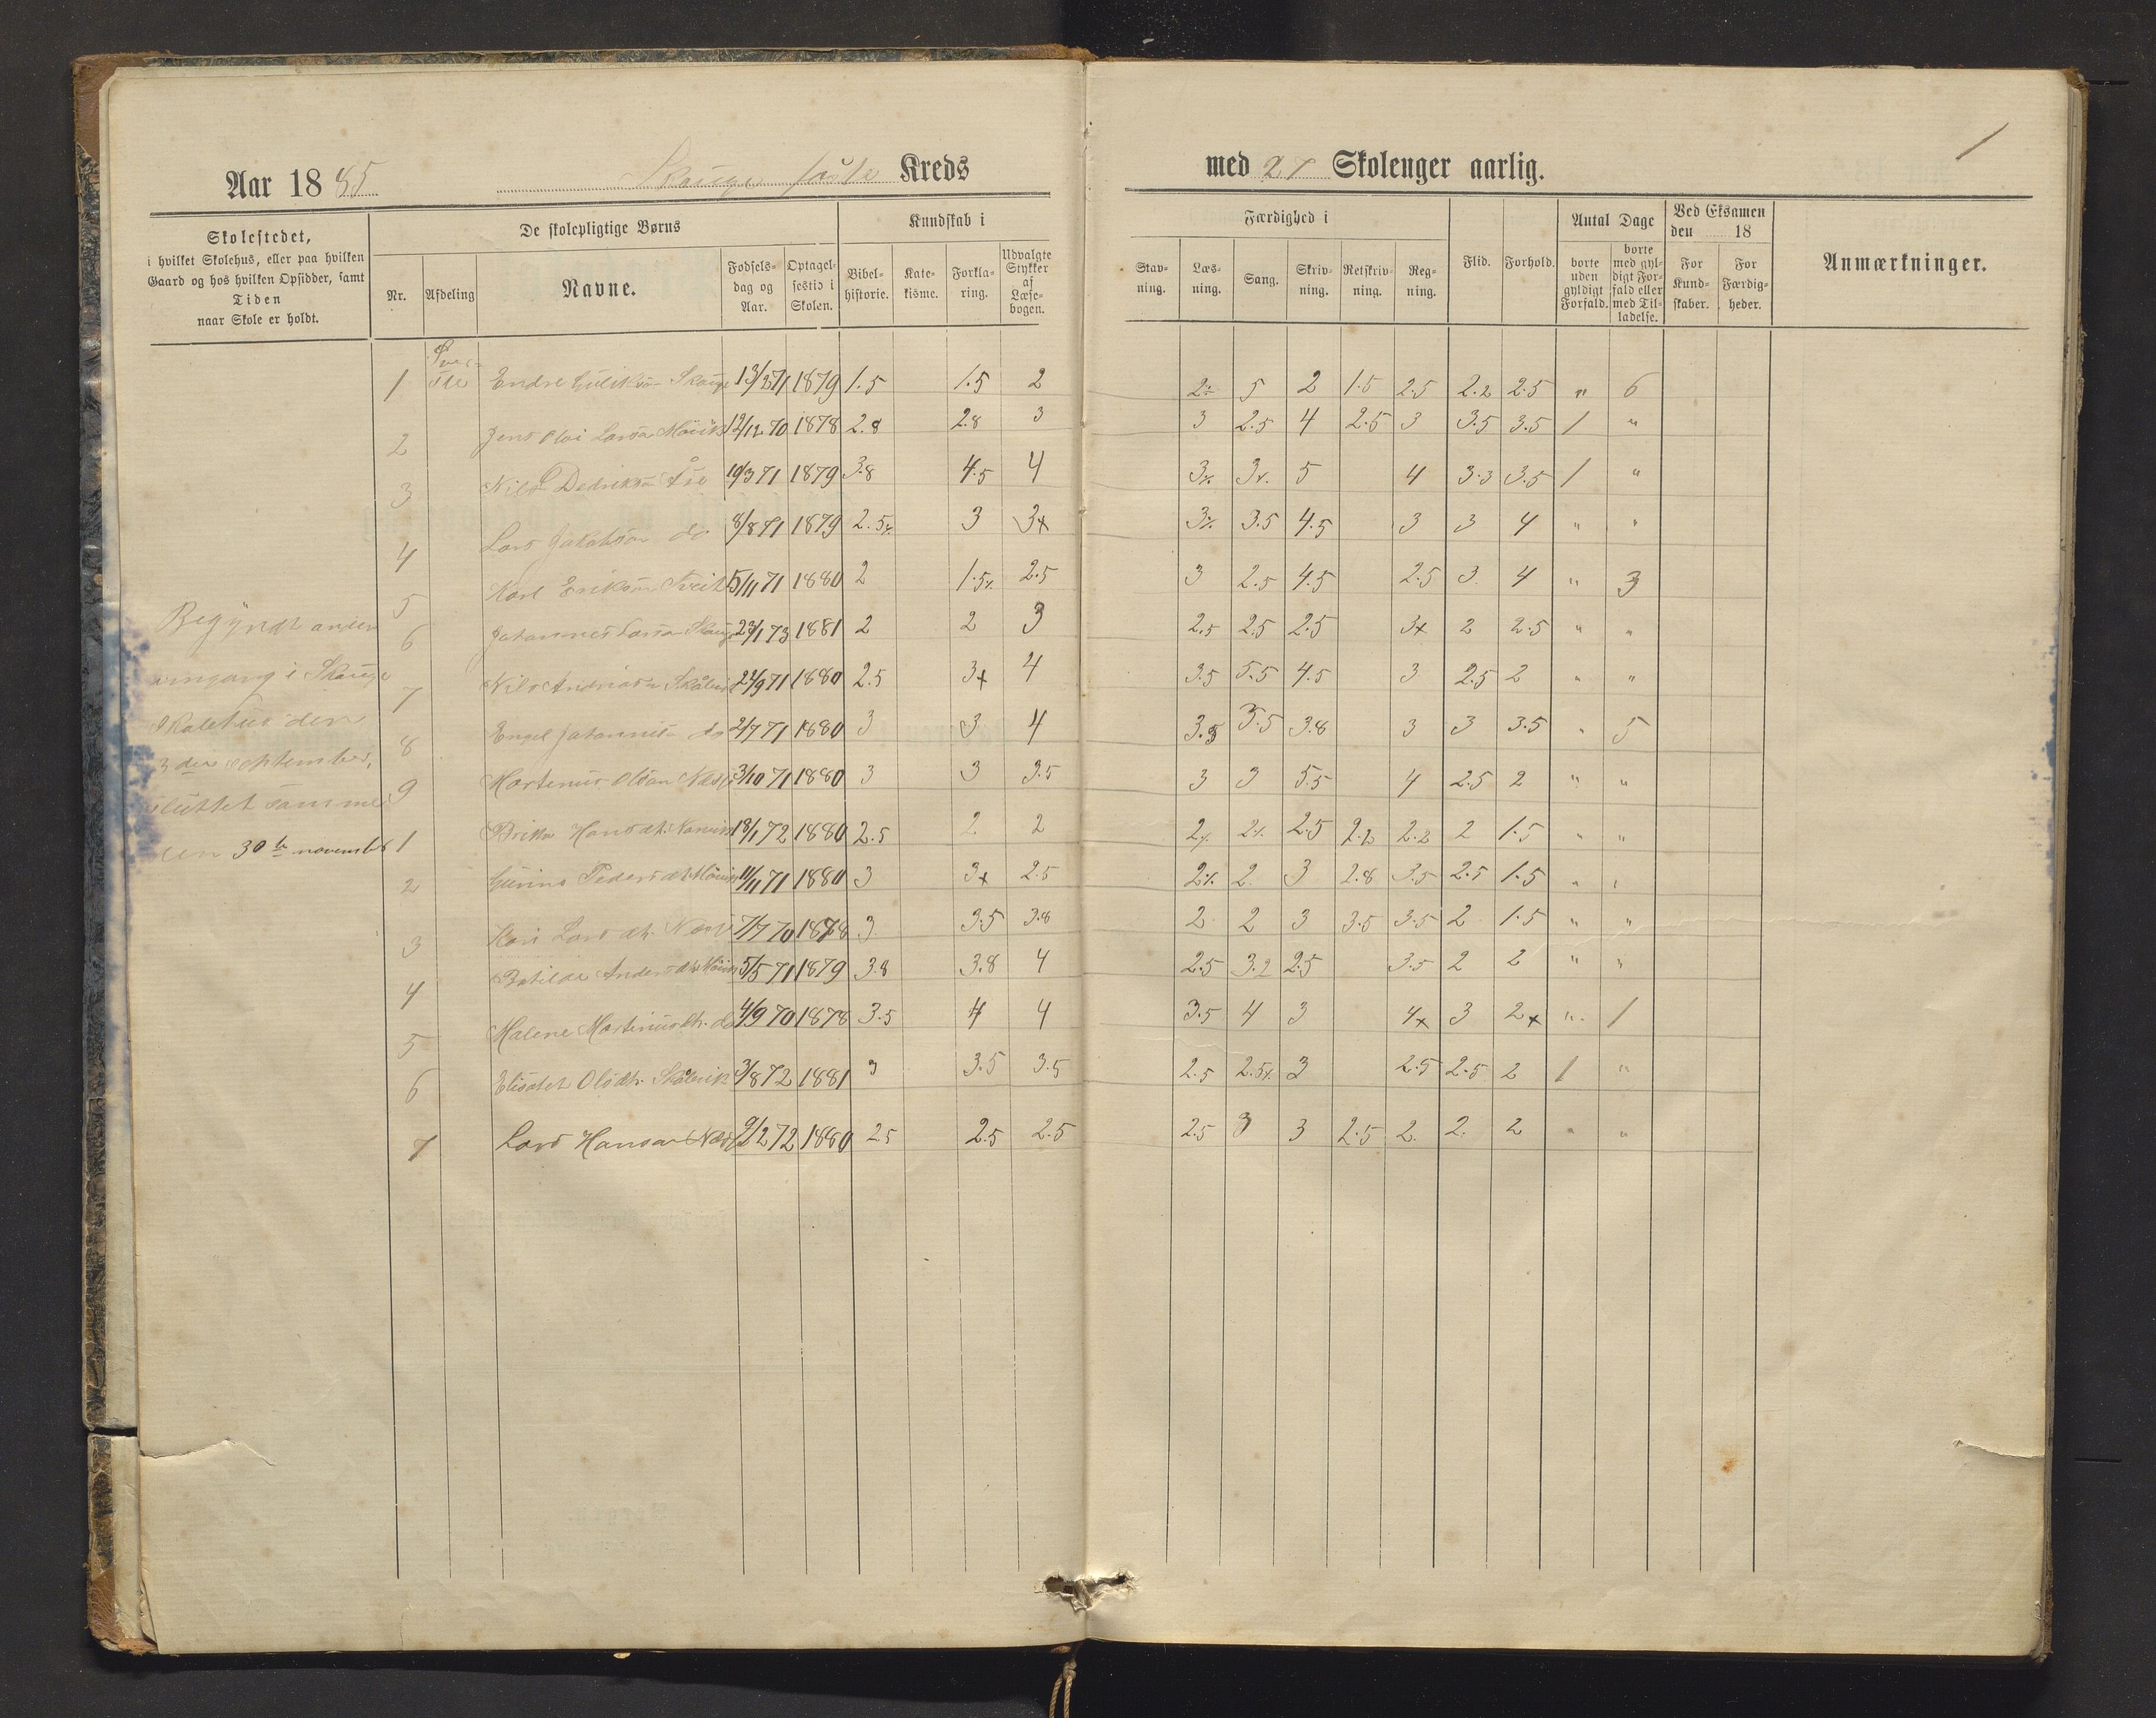 1
Aar 1885 Skauge faste Kreds med 27 Skolenger aarlig.
Skolestedet,
i hvilket Skolehus, eller paa hvilken
Gaard og hos hvilken Opsidder, samt
Tiden
naar Skole er holdt.
De skolepligtige Børns
Nr. Afdeling Navne. Fødsels-dag og Aar. Optagel-sestid i Skolen.
Kundskab i
Bibel-historie. Kate-kisme. Forkla-ring. Udvalgte Stykker af Læse-bogen.
Færdighed i
Stav-ning. Læs-ning. Sang. Skriv-ning. Retskriv-ning. Reg-ning.
Flid. Forhold.
Antal Dage
borte uden gyldigt Forfald. borte med gyl-digt For-fald eller med Til-ladelse.
Ved Eksamen
den 18
For Kund-skaber. For Færdig-heder.
Anmærkninger.
Begyndt anden
omgang i Skauge
skolehus den
3 die september,
sluttet samme
den 30te november
1 Øverste Endre Skauge 13/2 71 1879 1.5 1.5 2 2 5 2 1.5 2.5 2.2 2.5 " 6
2 Jens Olai Larsen 12/12 70 1878 2.8 2.8 3 3 2.5 4 2.5 3 3.5 3.5 1 "
3 Nils Dedriksøn 10/3 71 1879 3.8 4.5 4 3% 3% 5 4 3.3 3.5 1 "
4 Lars Jakobson do 8/8 71 1879 2.5% 3 3+ 3% 3.5 4.5 3 3 4 " "
5 Karl Erikson Tveit 5/11 71 1880 2 1.5% 2.5 3 2.5 4.5 2.5 3 4 " 3
6 Johannes Larson Skauge 23/1 73 1881 2 2 3 2.5 2.5 2.5 3+ 2 2.5 " "
7 Nils 22/9 71 1880 2.5 3+ 4 3.5 5.5 4.5 3 2.5 2 " "
8 Engel do 2/7 71 1880 3 3 4 3.5 5.5 3.8 3 3 3.5 " 5
9 Martinus Olson 3/10 71 1880 3 3 3.5 3 3 5.5 4 2.5 2 " "
1 Brita Hansdt. 18/1 72 1880 2.5 2 2 2% 2% 2.5 2.2 2.2 2 1.5 " "
2 Pedersdt. 11/11 71 1880 3 3+ 2.5 2% 2 3 2.8 3.5 2.5 1.5 " "
3 Kari Larsdt. 7/7 70 1878 3 3.5 3.8 2 2 3 3.5 3.5 2 1.5 " "
4 Batilde Andersdt. 5/5 71 1879 3.8 3.8 4 2.5 3.2 2.5 3.5 2 2 " "
5 Malene Martinusdt. do 4/9 70 1878 3.5 4 4 3.5 4 3 4+ 3 2+ " 1
6 Elisabet Olsdt. Skålevik 3/8 72 1881 3 3.5 3.5 2.5 2.5% 3 2.5 2.5 2 1 "
7 Lars Hanson 9/2 72 1880 2.5 2.5 2.5 2.5 3 3 2.5 2. 2. 2 " "